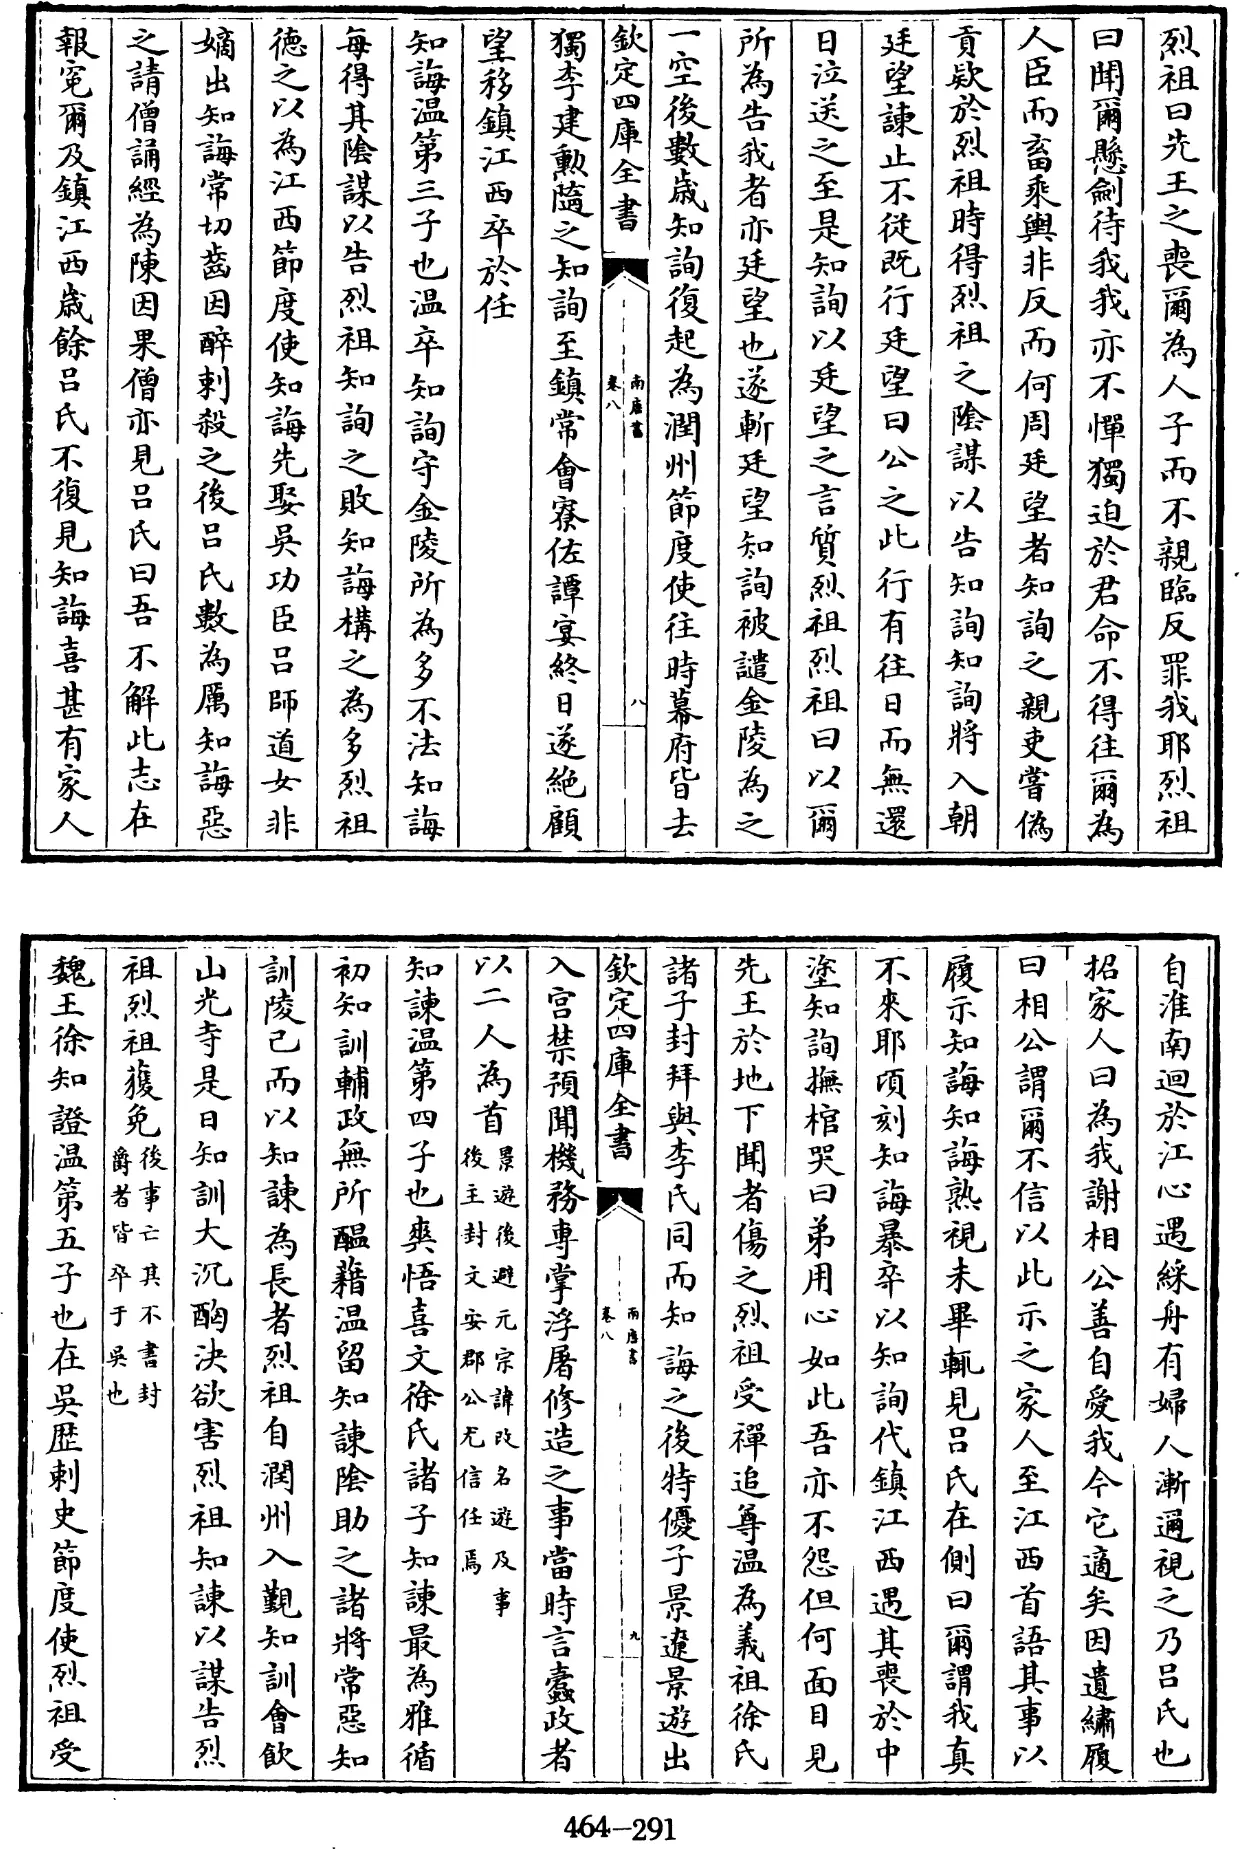 烈祖曰先王之喪爾為人子而不親臨反罪我耶烈祖
曰聞爾懸劍待我我亦不憚獨迫於君命不得往爾為
人臣而畜乘輿非反而何周廷望者知詢之親吏嘗偽
貢欵於烈祖時得烈祖之陰謀以告知詢知詢將入朝
廷望諫止不從既行廷望曰公之此行有往日而無還
日泣送之至是知詢以廷望之言質烈祖烈祖曰以爾
所為告我者亦廷望也遂斬廷望知詢被譴金陵為之
一空後數歲知詢復起為潤州節度使往時幕府皆去
欽定四庫全書
南唐書
卷八
八
獨李建勲隨之知詢至鎮常會寮佐譚宴終日遂絶顧
望移鎮江西卒於任
知誨温第三子也温卒知詢守金陵所為多不法知誨
每得其陰謀以告烈祖知詢之敗知誨構之為多烈祖
德之以為江西節度使知誨先娶吳功臣呂師道女非
嫡出知誨常切齒因醉刺殺之後呂氏數為厲知誨惡
之請僧誦經為陳因果僧亦見呂氏曰吾不解此志在
報寃爾及鎮江西歲餘呂氏不復見知誨喜甚有家人
自淮南迴於江心遇綵舟有婦人漸邇視之乃呂氏也
招家人曰為我謝相公善自愛我今它適矣因遺繡履
曰相公謂爾不信以此示之家人至江西首語其事以
履示知誨知誨熟視未畢輒見呂氏在側曰爾謂我真
不來耶頃刻知誨暴卒以知詢代鎮江西遇其喪於中
塗知詢撫棺哭曰弟用心如此吾亦不怨但何面目見
先王於地下聞者傷之烈祖受禪追尊温為義祖徐氏
諸子封拜與李氏同而知誨之後特優子景遼景遊出
欽定四庫全書
南唐書
卷八
九
入宫禁預聞機務專掌浮屠修造之事當時言蠹政者
以二人為首景遊後避元宗諱改名遊及事
後主封文安郡公尤信任焉
知諫温第四子也爽悟喜文徐氏諸子知諫最為雅循
初知訓輔政無所醖藉温留知諫陰助之諸將常惡知
訓陵己而以知諫為長者烈祖自潤州入覲知訓會飲
山光寺是日知訓大沉酗決欲害烈祖知諫以謀告烈
祖烈祖獲免後事亡其不書封
爵者皆卒于吳也
魏王徐知證温第五子也在吳歴刺史節度使烈祖受
464—291